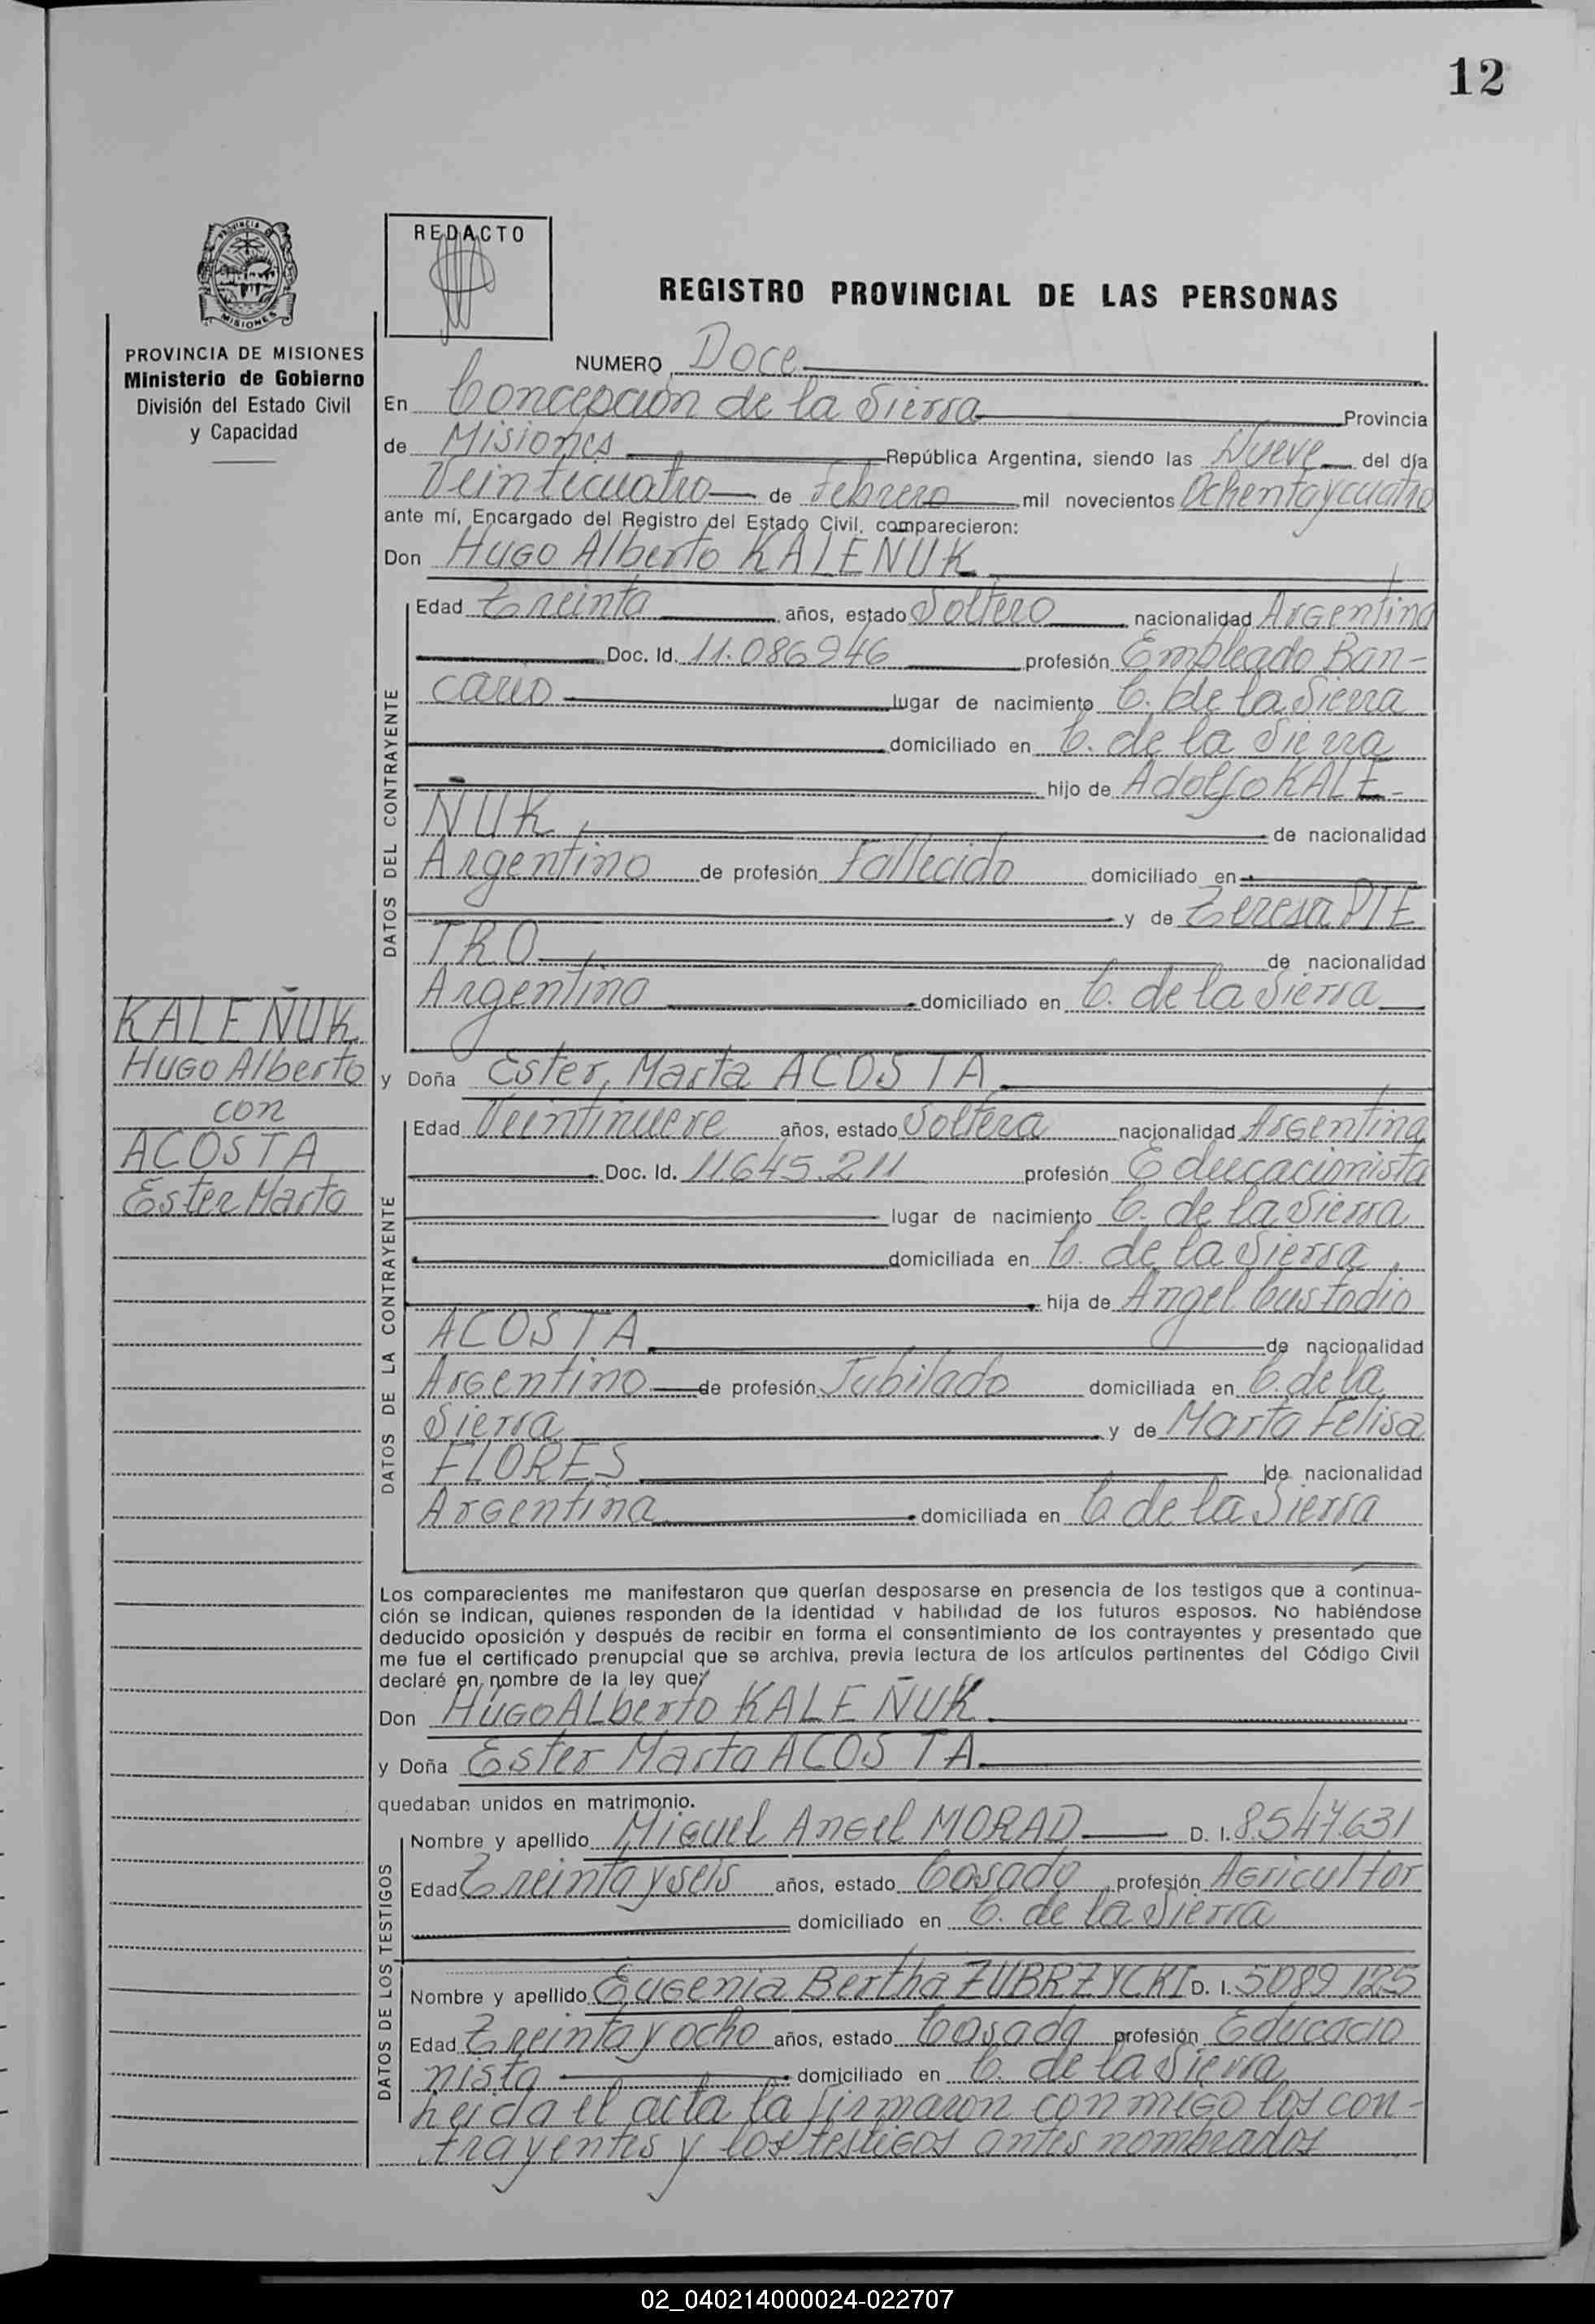 12
PROVINCIA DE
MISIONES
REDACTO
REGISTRO PROVINCIAL DE LAS PERSONAS
PROVINCIA DE MISIONES
Ministerio de Gobierno
División del Estado Civil
y Capacidad
NUMERO Doce
En Concepción de la Sierra Provincia
de Misiones República Argentina, siendo las Nueve del día
Veinticuatro de Febrero mil novecientos Ochenta y cuatro
ante mí, Encargado del Registro del Estado Civil, comparecieron:
Don Hugo Alberto KALEÑUK
DATOS DEL CONTRAYENTE
Edad Treinta años, estado Soltero nacionalidad Argentina
Doc. Id. 11.086946 profesión Empleado Ban-
cario lugar de nacimiento C. de la Sierra
domiciliado en C. de la Sierra
hijo de Adolfo KALE-
ÑUK de nacionalidad
Argentino de profesión Fallecido domiciliado en
y de Teresa PIE
TRO de nacionalidad
Argentina domiciliado en C. de la Sierra
KALEÑUK
Hugo Alberto
con
ACOSTA
Ester Marta
y Doña Ester, Marta ACOSTA
DATOS DE LA CONTRAYENTE
Edad Veintinueve años, estado Soltera nacionalidad Argentina
Doc. Id. 11.645.211 profesión Educacionista
lugar de nacimiento C. de la Sierra
domiciliada en C. de la Sierra
hija de Angel Custodio
ACOSTA de nacionalidad
Argentino de profesión Jubilado domiciliada en C. de la
Sierra y de Marta Felisa
FLORES de nacionalidad
Argentina domiciliada en C de la Sierra
Los comparecientes me manifestaron que querían desposarse en presencia de los testigos que a continua-
ción se indican, quienes responden de la identidad y habilidad de los futuros esposos. No habiéndose
deducido oposición y después de recibir en forma el consentimiento de los contrayentes y presentado que
me fue el certificado prenupcial que se archiva, previa lectura de los artículos pertinentes del Código Civil
declaré en nombre de la ley que:
Don Hugo Alberto KALEÑUK
y Doña Ester Marta ACOSTA
quedaban unidos en matrimonio.
DATOS DE LOS TESTIGOS
Nombre y apellido Miguel Angel MORAD D. I. 8.547.631
Edad Treinta y seis años, estado Casado profesión Agricultor
domiciliado en C. de la Sierra
Nombre y apellido Eugenia Bertha ZUBRZYCKI D. I. 5089125
Edad Treinta y ocho años, estado Casada profesión Educacio
nista domiciliado en C. de la Sierra
heida el acta la firmaron conmigo los con-
trayentes y los testigos antes nombrados
02_040214000024-022707